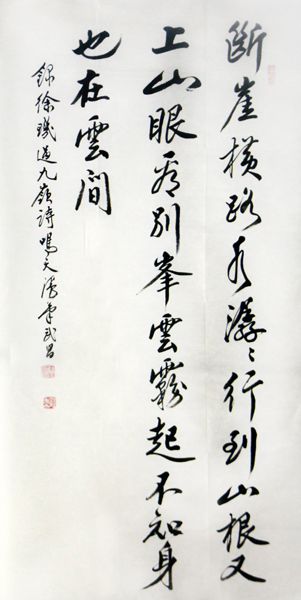 斷崖橫路水潺〻行到山根又
上山眼看別峯雲霧起不知身
也在雲間
錄徐璣過九嶺詩鳴筆武昌